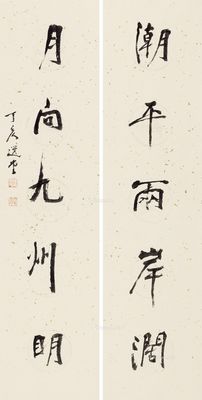 潮平兩岸濶
月向九州明
丁亥選堂